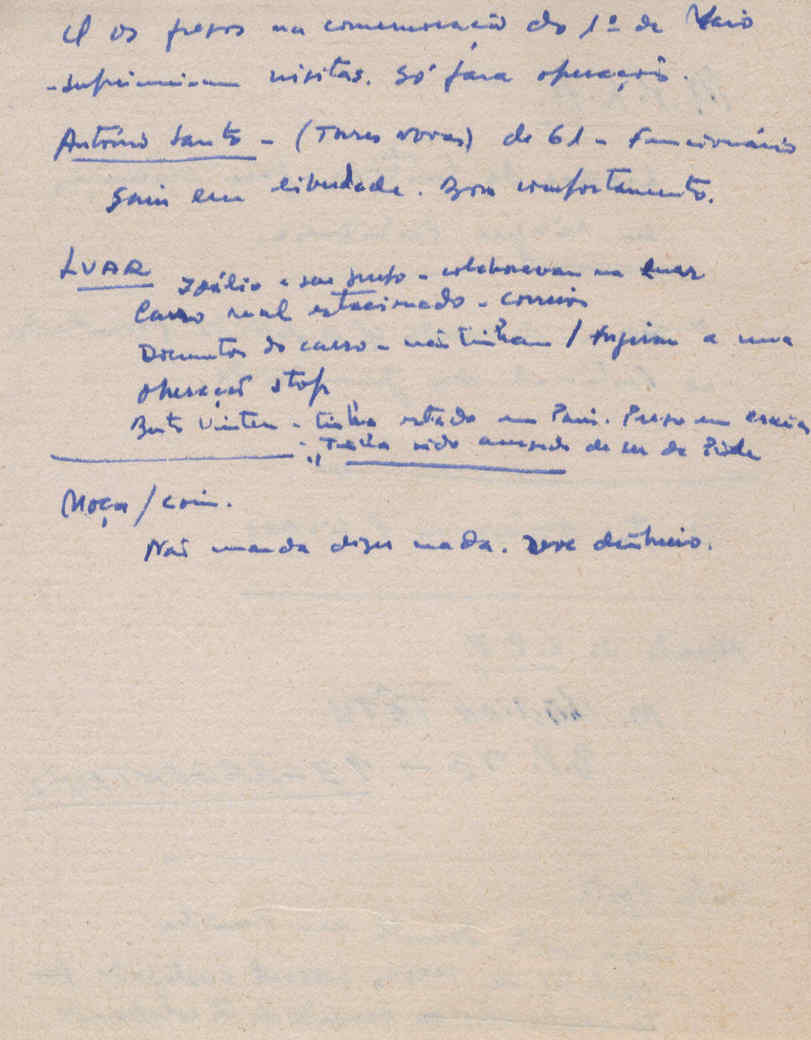 os presos na comemoração do 1º de Maio
- suprimiram visitas. Só para operações.
António Santo - (Torres Novas) de 61 - Funcionário
Saiu em liberdade. Bom comportamento.
LUAR
Idálio e seu grupo - colaboravam na Luar
Carro mal estacionado - correios
Documentos do carro - não tinham / fugiram a uma
operação stop
tinha estado em Paris. Preso em
- " Tinha sido acusado de ser da Pide
Moça / com.
Não manda dizer nada. Deve dinheiro.